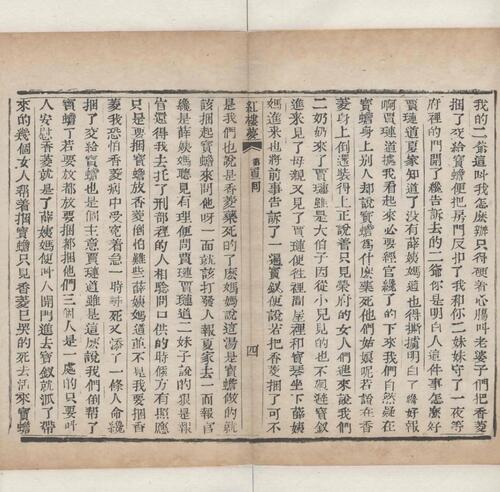 我的二爺這叫我怎麽辦只得硬着心腸叫老婆子們把香菱
捆了交給寶蟾便把房門反扣了我和你二妹妹守了一夜等
府裡的門開了纔告訴去的二爺你是明白人這件事怎麽好
賈璉道夏家知道了没有薛姨媽道也得撕擄明白了纔好報
啊賈璉道據我看起來必要經官纔了的下來我們自然疑在
寶蟾身上别人却說寶蟾爲什麽藥死他們姑娘呢若說在香
菱身上倒還裝得上正說着只見榮府的女人們進來說我們
二奶奶來了賈璉雖是大伯子因從小兒見的也不迴避寶釵
進來見了母親又見了賈璉便往裡間屋裡和寶琴坐下薛姨
媽進來也將前事告訴了一遍寶釵便說若把香菱捆了可不
紅樓夢 第百三回 四
是我們也說是香菱藥死的了麽媽媽說這湯是寶蟾做的就
該捆起寶蟾來問他呀一面就該打發人報夏家去一面報官
纔是薛姨媽聽見有理便問賈璉賈璉道二妹子說的狠是報
官還得我去托了刑部裡的人相驗問口供的時候方有照應
只是要捆寶蟾放香菱倒怕難些薛姨媽道並不是我要捆香
菱我恐怕香菱病中受寃着急一時尋死又添了一條人命纔
捆了交給寶蟾也是個主意賈璉道雖是這麽說我們倒幫了
寶蟾了若要放都放要捆都捆他們三個人是一處的只要叫
人安慰香菱就是了薛姨媽便叫人開門進去寶釵就派了帶
來的幾個女人幫着捆寶蟾只見香菱已哭的死去活來寶蟾